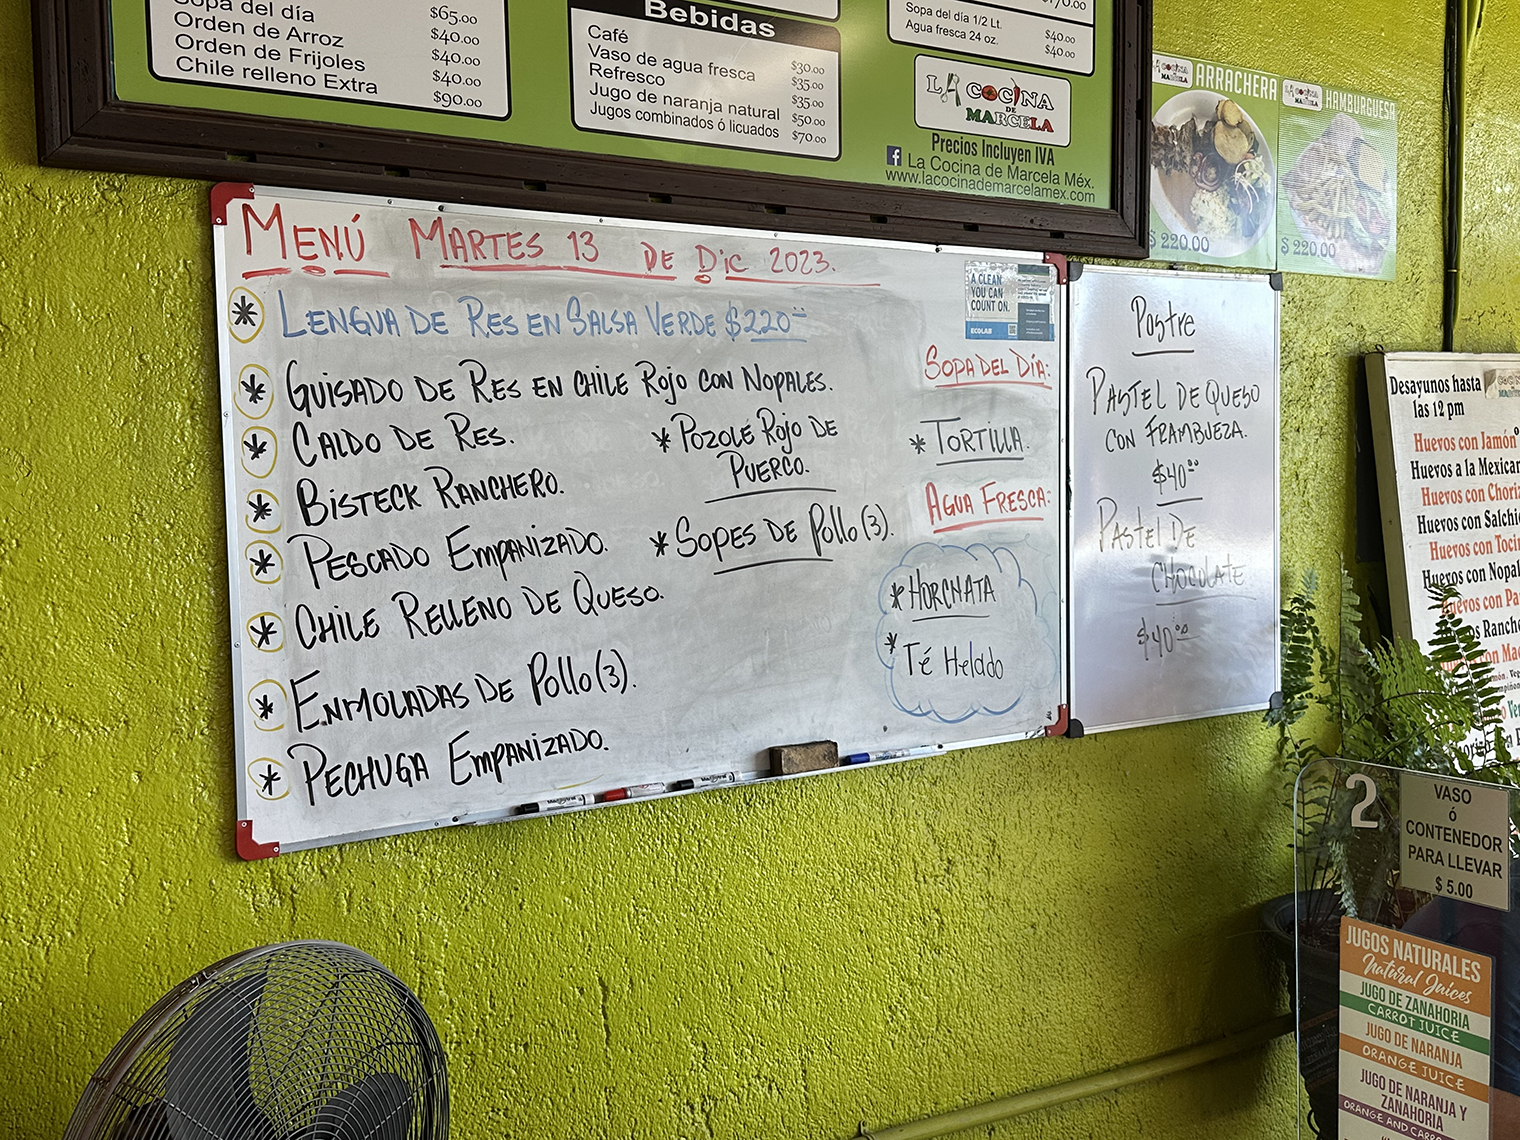 Sopa del día $65.00
Orden de Arroz $40.00
Orden de Frijoles $40.00
Chile relleno Extra $40.00
$90.00
Bebidas
Café $30.00
Vaso de agua fresca $35.00
Refresco $35.00
Jugo de naranja natural $50.00
Jugos combinados ó licuados $70.00
Sopa del día 1/2 Lt. $40.00
Agua fresca 24 oz. $40.00
LA COCINA
DE
MARCELA
Precios Incluyen IVA
La Cocina de Marcela Méx.
www.lacocinademarcelamex.com
ARRACHERA
$ 220.00
HAMBURGUESA
$ 220.00
MENÚ MARTES 13 DE DIC 2023.
* LENGUA DE RES EN SALSA VERDE $220.00
* GUISADO DE RES EN CHILE ROJO CON NOPALES.
* CALDO DE RES.
* BISTECK RANCHERO.
* PESCADO EMPANIZADO.
* CHILE RELLENO DE QUESO.
* ENMOLADAS DE Pollo (3).
* PECHUGA EMPANIZADO.
* POZOLE ROJO DE
PUERCO.
* SOPES DE Pollo (3).
A CLEAN
YOU CAN
COUNT ON.
ECOLAB
SOPA DEL DÍA:
* TORTILLA.
AGUA FRESCA:
* HORCHATA
* Té Helado
Postre
PASTEL DE QUESO
CON FRAMBUEZA.
$40.00
PASTEL DE
CHOCOLATE
$40.00
Desayunos hasta
las 12 pm
Huevos con Jamón
Huevos a la Mexican
Huevos con Choriz
Huevos con Salchi
Huevos con Tocin
Huevos con Nopal
Huevos con Pa
Ranche
con Ma
2
VASO
ó
CONTENEDOR
PARA LLEVAR
$ 5.00
JUGOS NATURALES
Natural Juices
JUGO DE ZANAHORIA
CARROT JUICE
JUGO DE NARANJA
ORANGE JUICE
JUGO DE NARANJA Y
ZANAHORIA
ORANGE AND CARRO